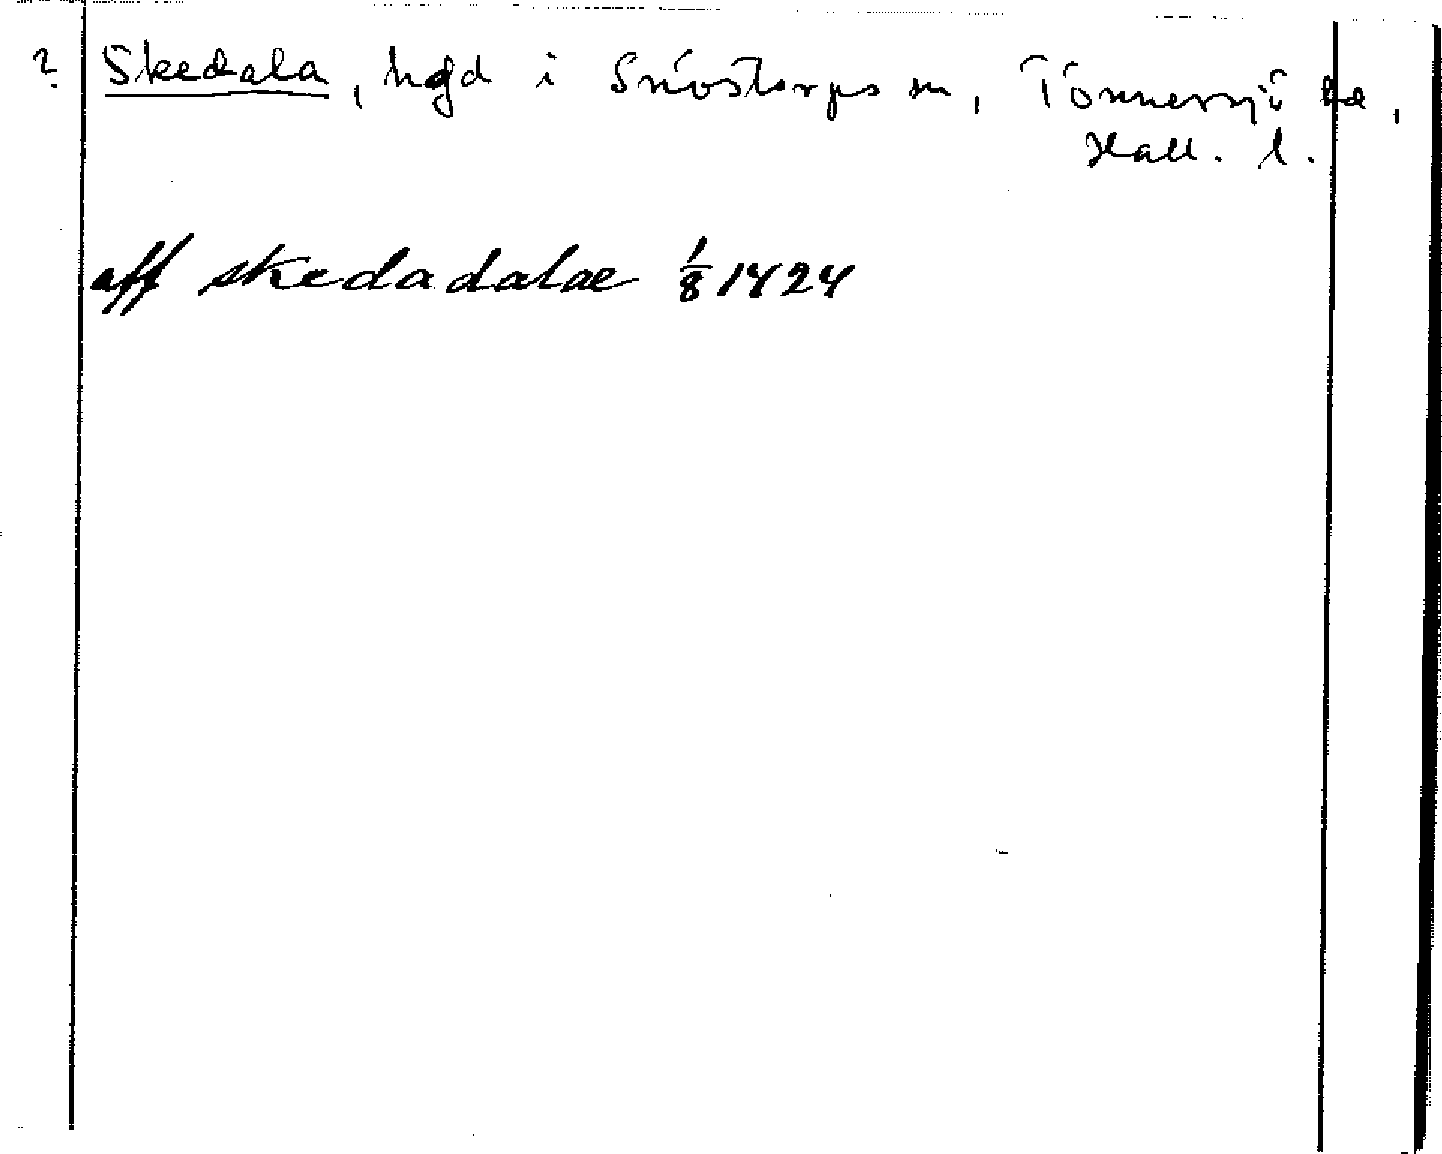 ? Skedala, hgd i Snöstorps sn, Tönnersjö hd,
Hall. l.
aff skedadalae 1/8 1424